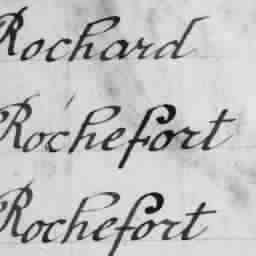 Rochard
Rochefort
Rochefort